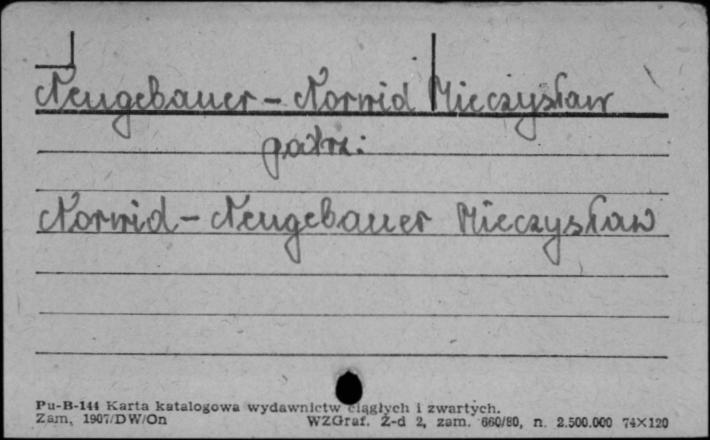 Neugebauer - Norwid Mieczysław
patrz:
Norwid - Neugebauer Mieczysław
Pu-B-144 Karta katalogowa wydawnictw ciągłych i zwartych.
Zam. 1907/DW/On WZGraf. Z-d 2, zam. 660/80, n. 2.500.000 74×120